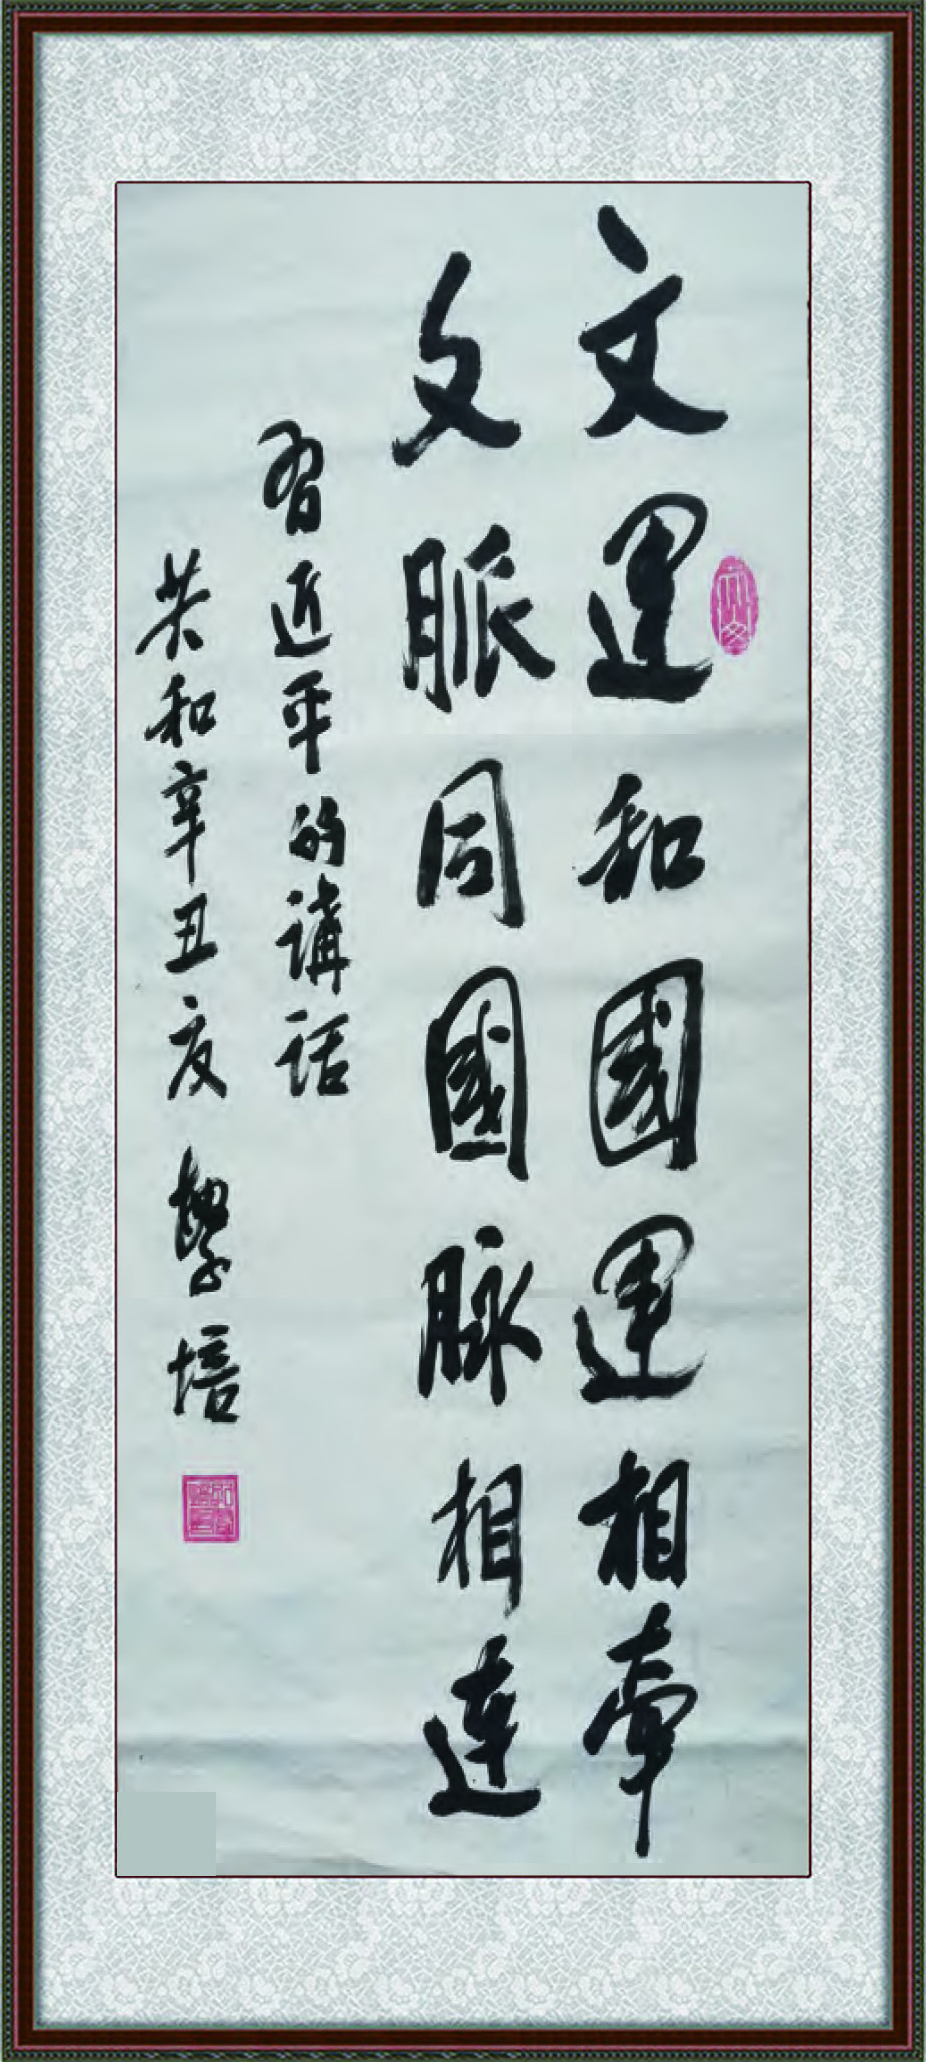 文運和國運相牽
文脈同國脈相連
習近平的講話
共和辛丑夏 學培